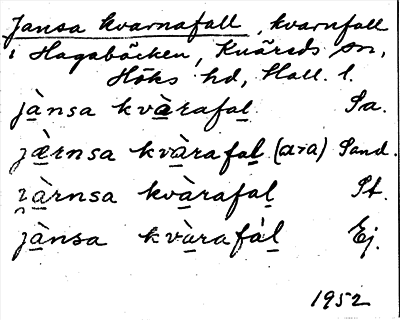 Jansa kvarnafall, kvarnfall
i Hagabäcken, Knäreds sn,
Höks hd, Hall. l.
jànsa kvàrafal Sa.
jæ̀rnsa kvàrafal (a>a) Sand.
jàrnsa kvàrafal St.
jànsa kvàrafàl Ej.
1952